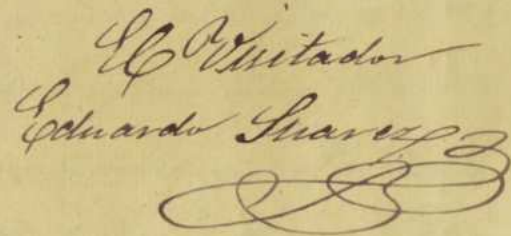 El Visitador
Eduardo Suarez